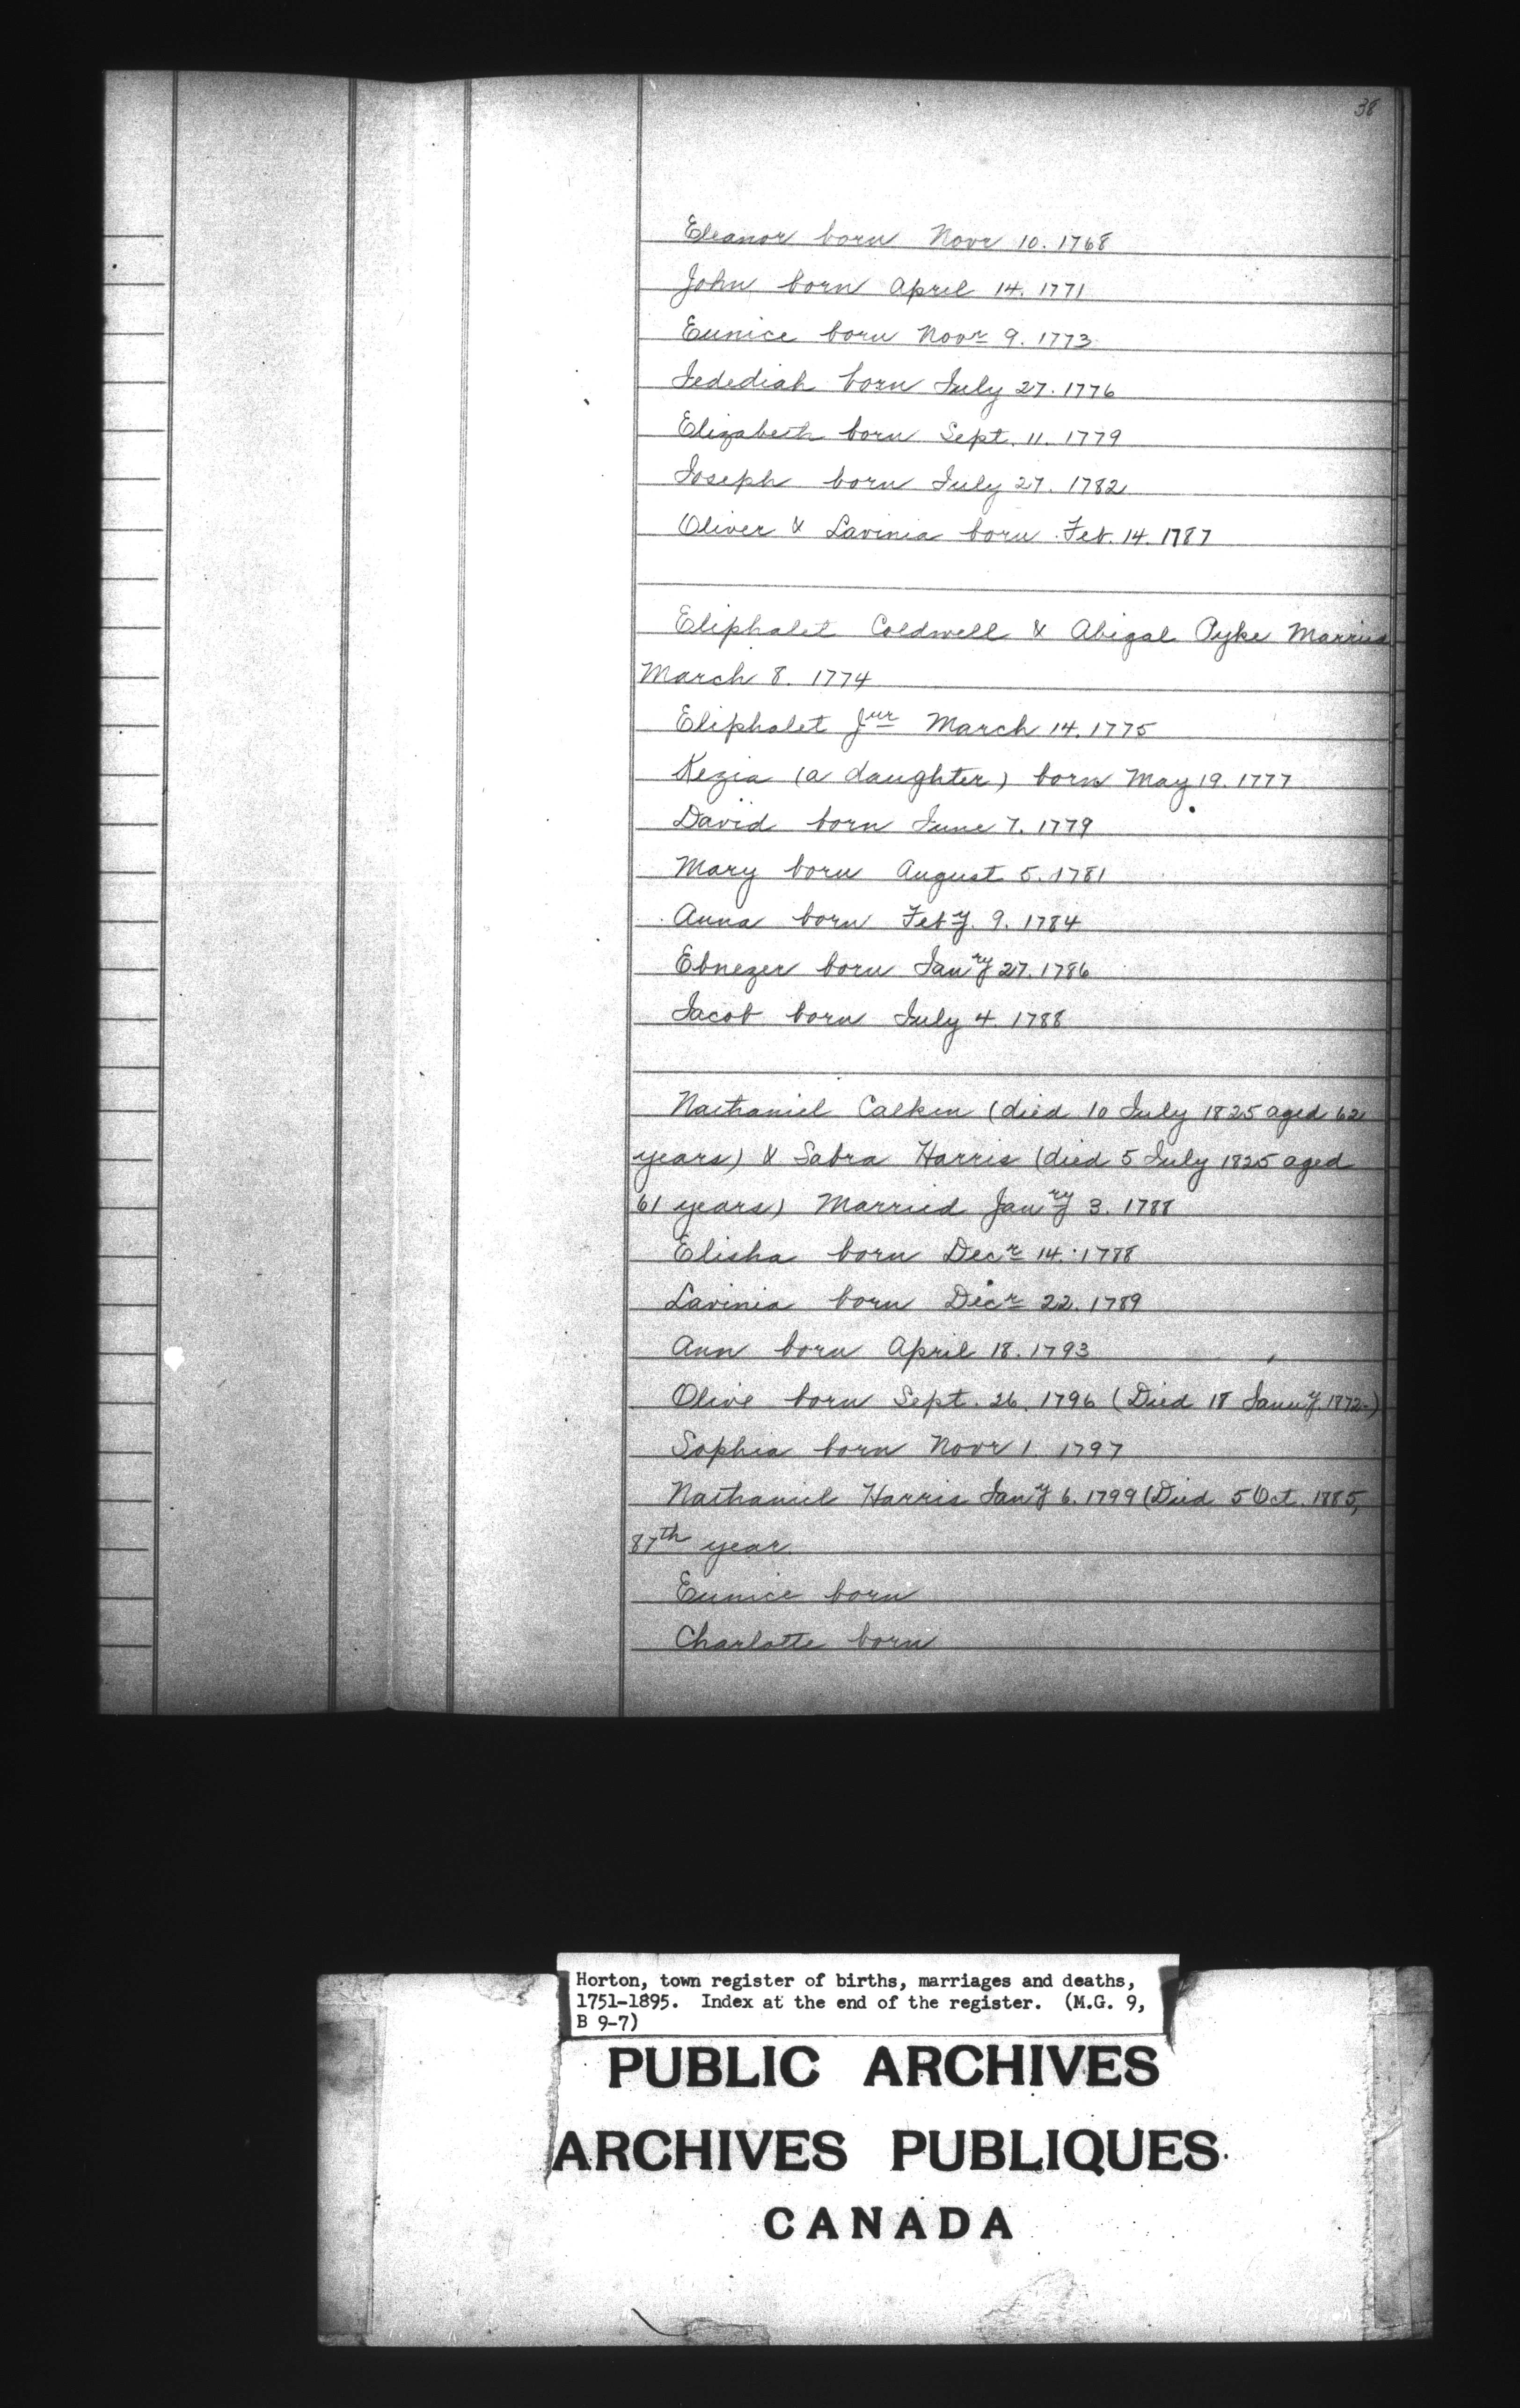 38
Eleanor born Novr 10. 1768
John born April 14. 1771
Eunice born Novr 9. 1773
Jedediah born July 27. 1776
Elizabeth born Sept. 11. 1779
Joseph born July 27. 1782
Oliver & Lavinia born Feb. 14. 1787
Eliphalet Coldwell & Abigal Pyke Married
March 8. 1774
Eliphalet Jur March 14. 1775
Kezia (a daughter) born May 19. 1777
David born June 7. 1779
Mary born August 5. 1781
Anna born Feby. 9. 1784
Ebnezer born Janry 27. 1786
Jacob born July 4. 1788
Nathaniel Calkin (died 10 July 1825 aged 62
years) & Sabra Harris (died 5 July 1825 aged
61 years) Married Janry 3. 1788
Elisha born Decr 14. 1788
Lavinia born Decr 22. 1789
Ann born April 18. 1793
Olive born Sept. 26. 1796 (Died 18 Jany. 1872.)
Sophia born Novr 1. 1797
Nathaniel Harris Jany 6. 1799 (Died 5 Oct. 1885,
87th year
Eunice born
Charlotte born
Horton, town register of births, marriages and deaths,
1751-1895. Index at the end of the register. (M.G. 9,
B 9-7)
PUBLIC ARCHIVES
ARCHIVES PUBLIQUES
CANADA